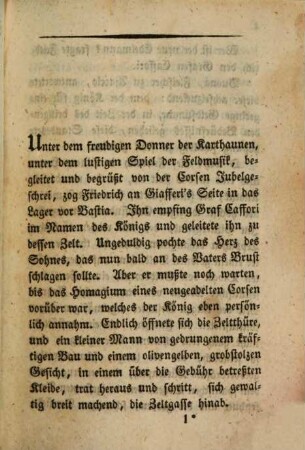 Unter dem freudigen Donner der Karthaunen,
unter dem lustigen Spiel der Feldmusik, be-
gleitet und begrüßt von der Corsen Jubelge-
schrei, zog Friedrich an Giafferi's Seite in das
Lager vor Bastia. Ihn empfing Graf Caffori
im Namen des Königs und geleitete ihn zu
dessen Zelt. Ungeduldig pochte das Herz des
Sohnes, das nun bald an des Vaters Brust
schlagen sollte. Aber er mußte noch warten,
bis das Homagium eines neugeadelten Corsen
vorüber war, welches der König eben persön-
lich annahm. Endlich öffnete sich die Zeltthüre,
und ein kleiner Mann von gedrungenem kräf-
tigen Bau und einem olivengelben, grobstolzen
Gesicht, in einem über die Gebühr betreßten
Kleide, trat heraus und schritt, sich gewal-
tig breit machend, die Zeltgasse hinab.
1*